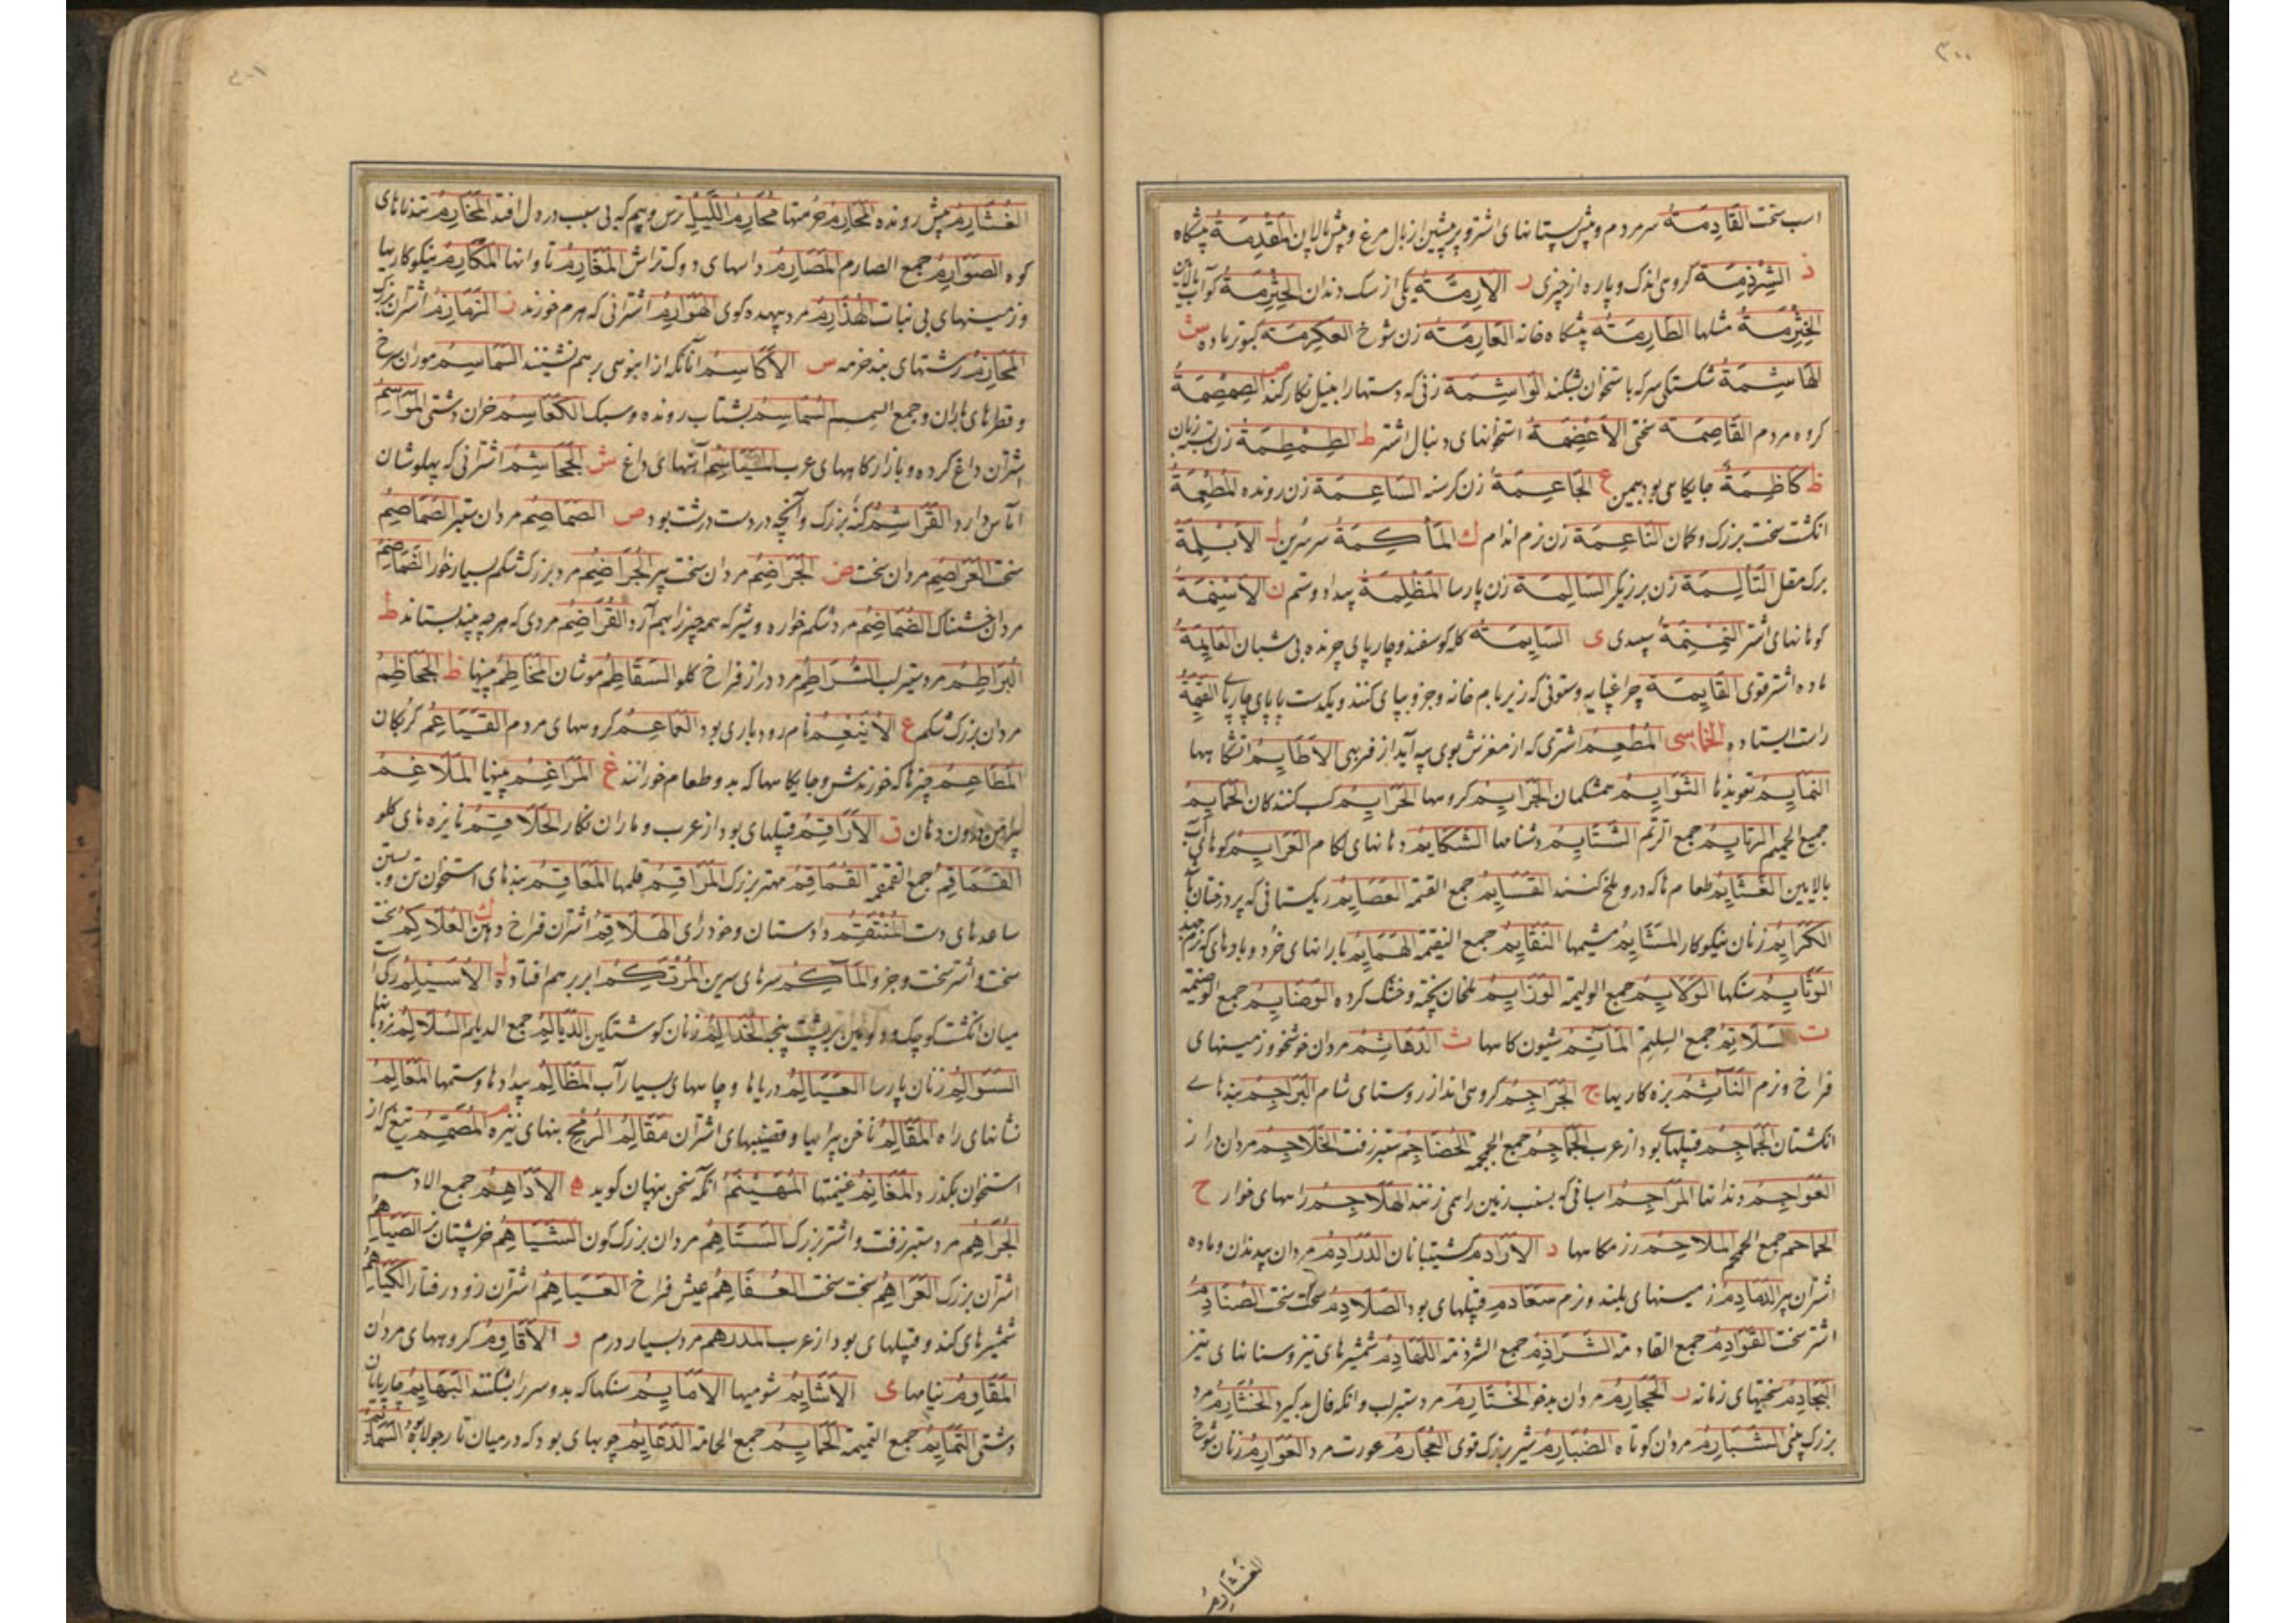 ۳۰۰
اسب سخت القَادِمَةُ سر مردم و پیش پستانهای اشتر و پر پیشین از بال مرغ و پیش پالان المُقْدِمَةُ پیشگاه
ذ الشِّرْذِمَة کروهی اندک و پاره از چیزی ر الارِمَّةُ یکی از سک دندان الخِثْرِمَةُ
مثلها الطَّارِمَةُ پیشگاه خانه العَارِمَةُ زن شوخ العِكْرِمَة کبوتر ماده ش
الهَاشِمَةُ شکستگی سر که باستخوان بشکند الوَاشِمَة زنی که دستها را بنیل نکار کند ص الصِمْصِمَةُ
کروه مردم القَاصِمَة سختی الاَعْصِمَة استخوانهای دنبال اشتر ط الطِمْطِمَةُ زن
ظ كَاظِمَةُ جایکاهی بود بیمن ع الجَاعِمَةُ زن کرسنه السَاعِمَة زن رونده المُطْعِمَةُ
انکشت سخت بزرک و کمان النَاعِمَة زن نرم اندام ك المَأكِمَةُ سر سرین ل الاَبْلِمَةُ
برک مقل التَألِمَة زن برزیکر السَالِمَة زن پارسا المَظْلِمَةُ بیداد و ستم ن الاَسْنِمَةُ
کوهانهای اشتر النِمْنِمَةُ سپیدی ی السَايِمَةُ کله کوسفند و چارپای چرنده بی شبان
ماده اشتر قوی القَايِمَة چراغپایه و ستونی که زیر بام خانه و جز او بپای کنند و یکدست یا پای چارپای القَيِّمَةُ
راست ایستاده الخماسی المُطْعِمُ اشتری که از مغزش بوی پیه آید از فربهی الاَطَايِمُ آتشگاهها
التَمَايِمُ تعویذها التَوَايِمُ همشکمان الجَرَايِمُ کروهها الجَرَايِمُ کسب کنندکان الحَمَايِمُ
جمع الحمیم الرتايِمُ جمع الرتم الشَتَايِمُ دشنامها الشَكَايِمُ دهانهای لکام
الغَثَايِمُ طعامها که در و ملخ کنند القَسَايِمُ جمع القسمة العَصَايِمُ
الكَرَايِمُ زنان نیکوکار المَشَايِمُ مشیمها النَقَايِمُ جمع النقمة الهَمَايِمُ بارانهای خرد و بادهای
الوَثَايِمُ سنکها الوَلَايِمُ جمع الولیمة الوَزَايِمُ ملخان پخته و خشک کرده الوَضَايِمُ جمع الوضیمة
ت السَلَاتِمُ جمع السلتم المَآتِمُ شیون کاهها ث الدَهَاثِمُ مردان خوشخو و زمینهای
فراخ و نرم المَآثِمُ بزه کاریها ج الجَرَاجِمُ کروهی اند از روستای شام البَرَاجِمُ بندهای
انکشتان الجَمَاجِمُ قبیلهای بود از عرب الجَمَاجِمُ جمع الجمجمة الحُضَاجِمُ ستبر زفت الخَلَاجِمُ مردان دراز
العَوَاجِمُ دندانها المَرَاجِمُ اسبانی که بسنب زمین را همی زنند الهَلَاجِمُ راههای خوار ح
الحماحم جمع الحمحم المَلَاحِمُ رزمگاهها د الاَرَادِمُ کشتیبانان الدَرَادِمُ مردان بی دندان و ماده
اشتران پیر الدَمَادِمُ زمینهای بلند و نرم سَعَادِم قبیلهای بود الصَلَادِمُ سخت سخت الصُنَادِمُ
اشتر سخت القَوَادِمُ جمع القادمة الشَرَاذِمُ جمع الشرذمة اللَهَاذِمُ شمشیرهای تیز و سنانهای تیز
سختیهای زمانه ر الحَجَارِمُ مردان بدخو الخُثَارِمُ مرد ستبر لب و انکه فال بد کیرد الخُشَارِمُ مرد
بزرک بینی الشَبَارِمُ مردان کوتاه الضُبَارِمُ شیر بزرک قوی العُجَارِمُ عورت مرد العَوَارِمُ زنان شوخ
الغُشَارِمُ
الغُشَارِمُ پیش رونده المَحَارِمُ حرمتها مَحَارِمُ اللَّيْلِ ترس و بیم که بی سبب در دل افتد المَخَارِمُ تندناهای
کوه الصَوَارِمُ جمع الصارم المَصَارِمُ داسهای دوک تراش المَغَارِمُ تاوانها المَكَارِمُ نیکوکاریها
و زمینهای بی نبات الهُذَارِمُ مرد بیهده کوی الهَوَارِمُ اشترانی که هرم خورند ز النَهَازِمُ اشتران بزرک
المَحَازِمُ رشتهای بند خرمه س الاَكَاسِمُ آنانکه از انبوهی بر هم نشینند السَمَاسِمُ موران سرخ
و قطرهای باران و جمع السمسم السُمَاسِمُ بشتاب رونده و سبک الكَعَاسِمُ خران دشتی المَوَاسِمُ
اشتران داغ کرده و بازارکاههای عرب المَيَاسِمُ آهنهای داغ ش الجَحَاشِمُ اشترانی که پهلوشان
آماس دارد القَرَاشِمُ کنه بزرک و آنچه در دست درشت بود ص الصَمَاصِمُ مردان ستبر الصُمَاصِمُ
سخت العَرَاصِمُ مردان سخت ض الجَرَاضِمُ مردان سخت پیر الجُرَاضِمُ مرد بزرک شکم بسیار خوار الضَمَاضِمُ
مردان خشمناک الضُمَاضِمُ مرد شکم خواره و شیر که همه چیز را بهم آرد القُرَاضِمُ مردی که هر چه بیند بستاند ط
البُرَاطِمُ مرد ستبر لب السُرَاطِمُ مرد دراز فراخ کلو السَقَاطِمُ موشان المَخَاطِمُ بینیها ظ الجَحَاظِمُ
مردان بزرک شکم ع الاُنَيْعِمُ نام رودباری بود العَمَاعِمُ کروههای مردم القَيَاعِمُ کربکان
المَطَاعِمُ چیزها که خورندش و جایکاهها که بدو طعام خورانند غ المَرَاغِمُ بینیها المَلَاغِمُ
پیرامن و درون دهان ق الاَرَاقِمُ قبیلهای بود از عرب و ماران نکار الحَلَاقِمُ نایزه های کلو
القَمَاقِمُ جمع القمقمه القُمَاقِمُ مهتر بزرک المَرَاقِمُ قلمها المَعَاقِمُ بندهای استخوان
ساعدهای دست المُنْتَقِمُ دادستان و خودرای الهَلَاقِمُ اشتران فراخ دهن ك العُلَاكِمُ سخت
سخت و اشتر سخت و جز و المَآكِمُ سرهای سرین المُرْتَكِمُ ابر بر هم افتاده ل الاُسَيْلِمُ
میان انکشت کوچک و دویمین بر پشت پنجه الخَدَالِمُ زنان کوشتکین الدَيَالِمُ جمع الدیلم السَلَالِمُ نردبانها
السَوَالِمُ زنان پارسا العَيَالِمُ دریاها و چاههای بسیار آب المَظَالِمُ بیدادها و ستمها المَعَالِمُ
نشانهای راه المَقَالِمُ ناخن پیراها و قضیبهای اشتران مَقَالِمُ الرُمْحِ بنهای نیزه م المُصَمِّمُ تیغ که از
استخوان بگذرد المَغَانِمُ غنیمتها المُهَيْنِمُ انکه سخن پنهان کوید ه الاَدَاهِمُ جمع الادهم
الجُرَاهِمُ مرد ستبر زفت و اشتر بزرک السَتَاهِمُ مردان بزرک کون الشَيَاهِمُ خرپشتان نر
اشتران بزرک العَرَاهِمُ سخت سخت العُفَاهِمُ عیش فراخ العَيَاهِمُ اشتران زود رفتار
شمشیرهای کند و قبیلهای بود از عرب المدرهم مرد بسیار درم و الاَقَاوِمُ کروههای مردان
المَقَاوِمُ نیامها ی الاَشَايِمُ شومیها الاَمَايِمُ سنکها که بدو سر را بشکنند البَهَايِمُ چارپایان
دشتی التَمَايِمُ جمع التمیمة الحَمَايِمُ جمع الحمامة الدَعَايِمُ چوبهای بود که در میان